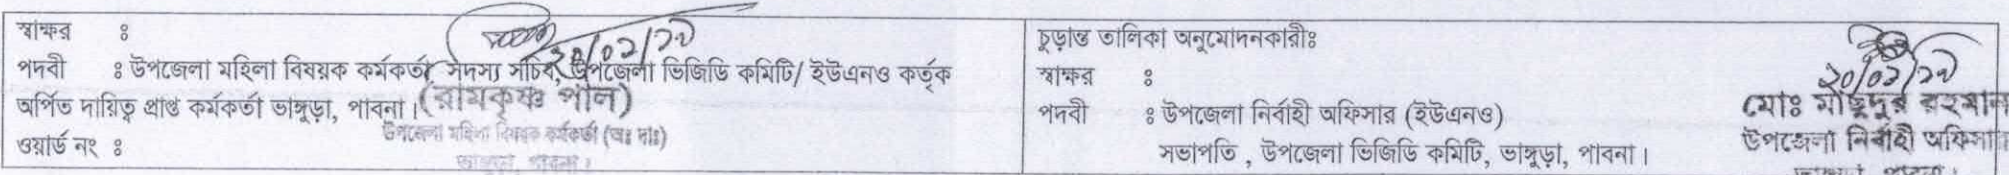 স্বাক্ষর ঃ
পদবী ঃ উপজেলা মহিলা বিষয়ক কর্মকর্তা সদস্য সচিব, উপজেলা ভিজিডি কমিটি/ ইউএনও কর্তৃক
অর্পিত দায়িত্ব প্রাপ্ত কর্মকর্তা ভাঙ্গুড়া, পাবনা।
(রামকৃষ্ণ পাল)
উপজেলা মহিলা বিষয়ক কর্মকর্তা (অঃ দাঃ)
ভাঙ্গুড়া, পাবনা।
ওয়ার্ড নং ঃ
চুড়ান্ত তালিকা অনুমোদনকারীঃ
স্বাক্ষর ঃ
পদবী ঃ উপজেলা নির্বাহী অফিসার (ইউএনও)
সভাপতি , উপজেলা ভিজিডি কমিটি, ভাঙ্গুড়া, পাবনা।
মোঃ মাছুদুর রহমান
উপজেলা নির্বাহী অফিসার